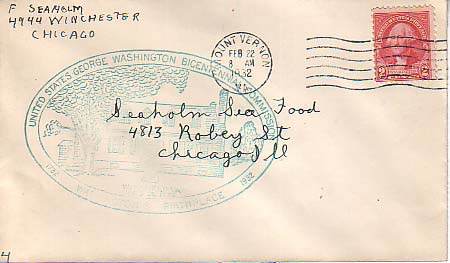 F SEAHOLM
4944 WINCHESTER
CHICAGO
MOUNT VERNON
FEB 22
8 AM
1932
UNITED STATES GEORGE WASHINGTON BICENTENNIAL COMMISSION
Seaholm Sea Food
4813 Robey St
Chicago Ill
1732
BIRTHPLACE
1932
2
4